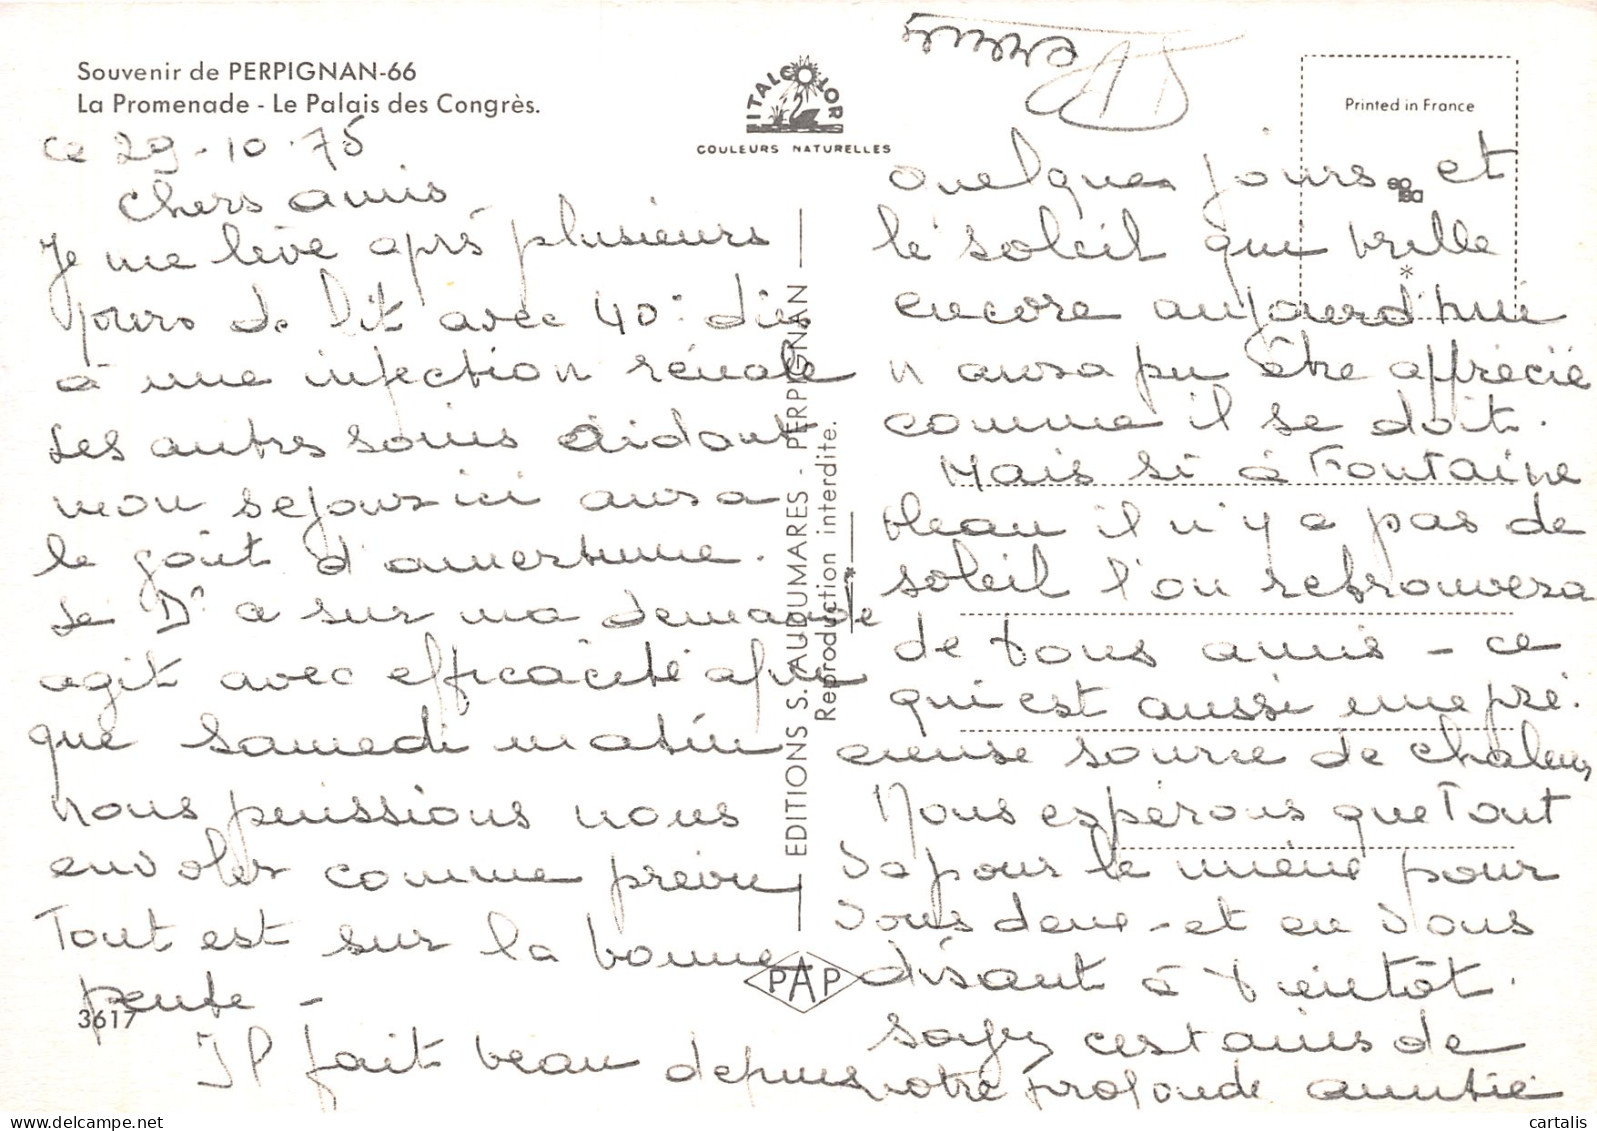 Souvenir de PERPIGNAN-66
La Promenade - Le Palais des Congrès.
ITALCOLOR
COULEURS NATURELLES
Printed in France
ce 29-10-75
chers amis
Je me lève après plusieurs
jours de lit avec 40° dûs
à une infection rénale
Les autres soucis aidant
mon sejour ici aura
le goût d'amertume.
Le Dr a sur ma demande
agit avec efficacité afin
que samedi matin
nous puissions nous
envoler comme prévu
Tout est sur la bonne
pente -
Il fait beau depuis
quelques jours et
le soleil qui brille
encore aujourd'hui
n aura pu être apprécié
comme il se doit.
Mais si à Fontaine
bleau il n'y a pas de
soleil l'on retrouvera
de bons amis - ce
qui est aussi une pré.
cieuse source de chaleur
Nous espérons que Tout
va pour le mieux pour
vous deux - et en vous
disant à bientôt.
soyez certains de
notre profonde amitié
EDITIONS S. AUDUMARES - PERPIGNAN
Reproduction interdite.
PAP
3617
cartalis